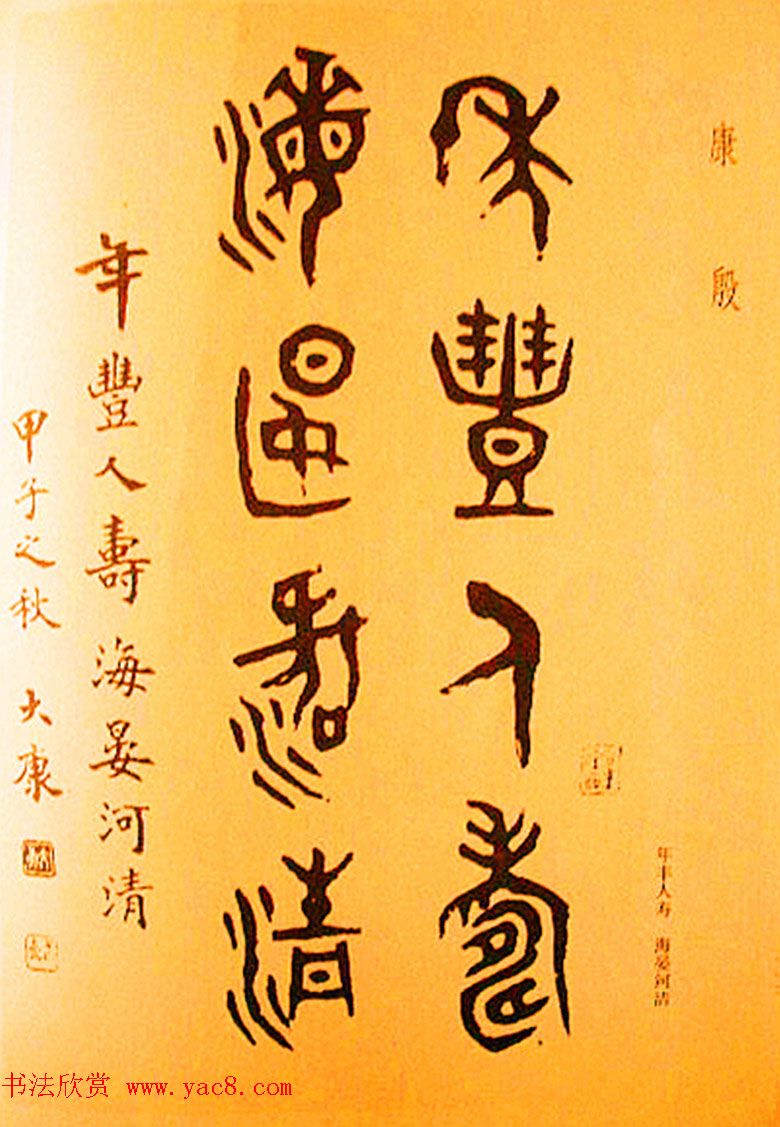 康殷
年豐人壽
海晏河清
年豐人壽海晏河清
甲子之秋 大康
年丰人寿 海晏河清
书法欣赏 www.yac8.com